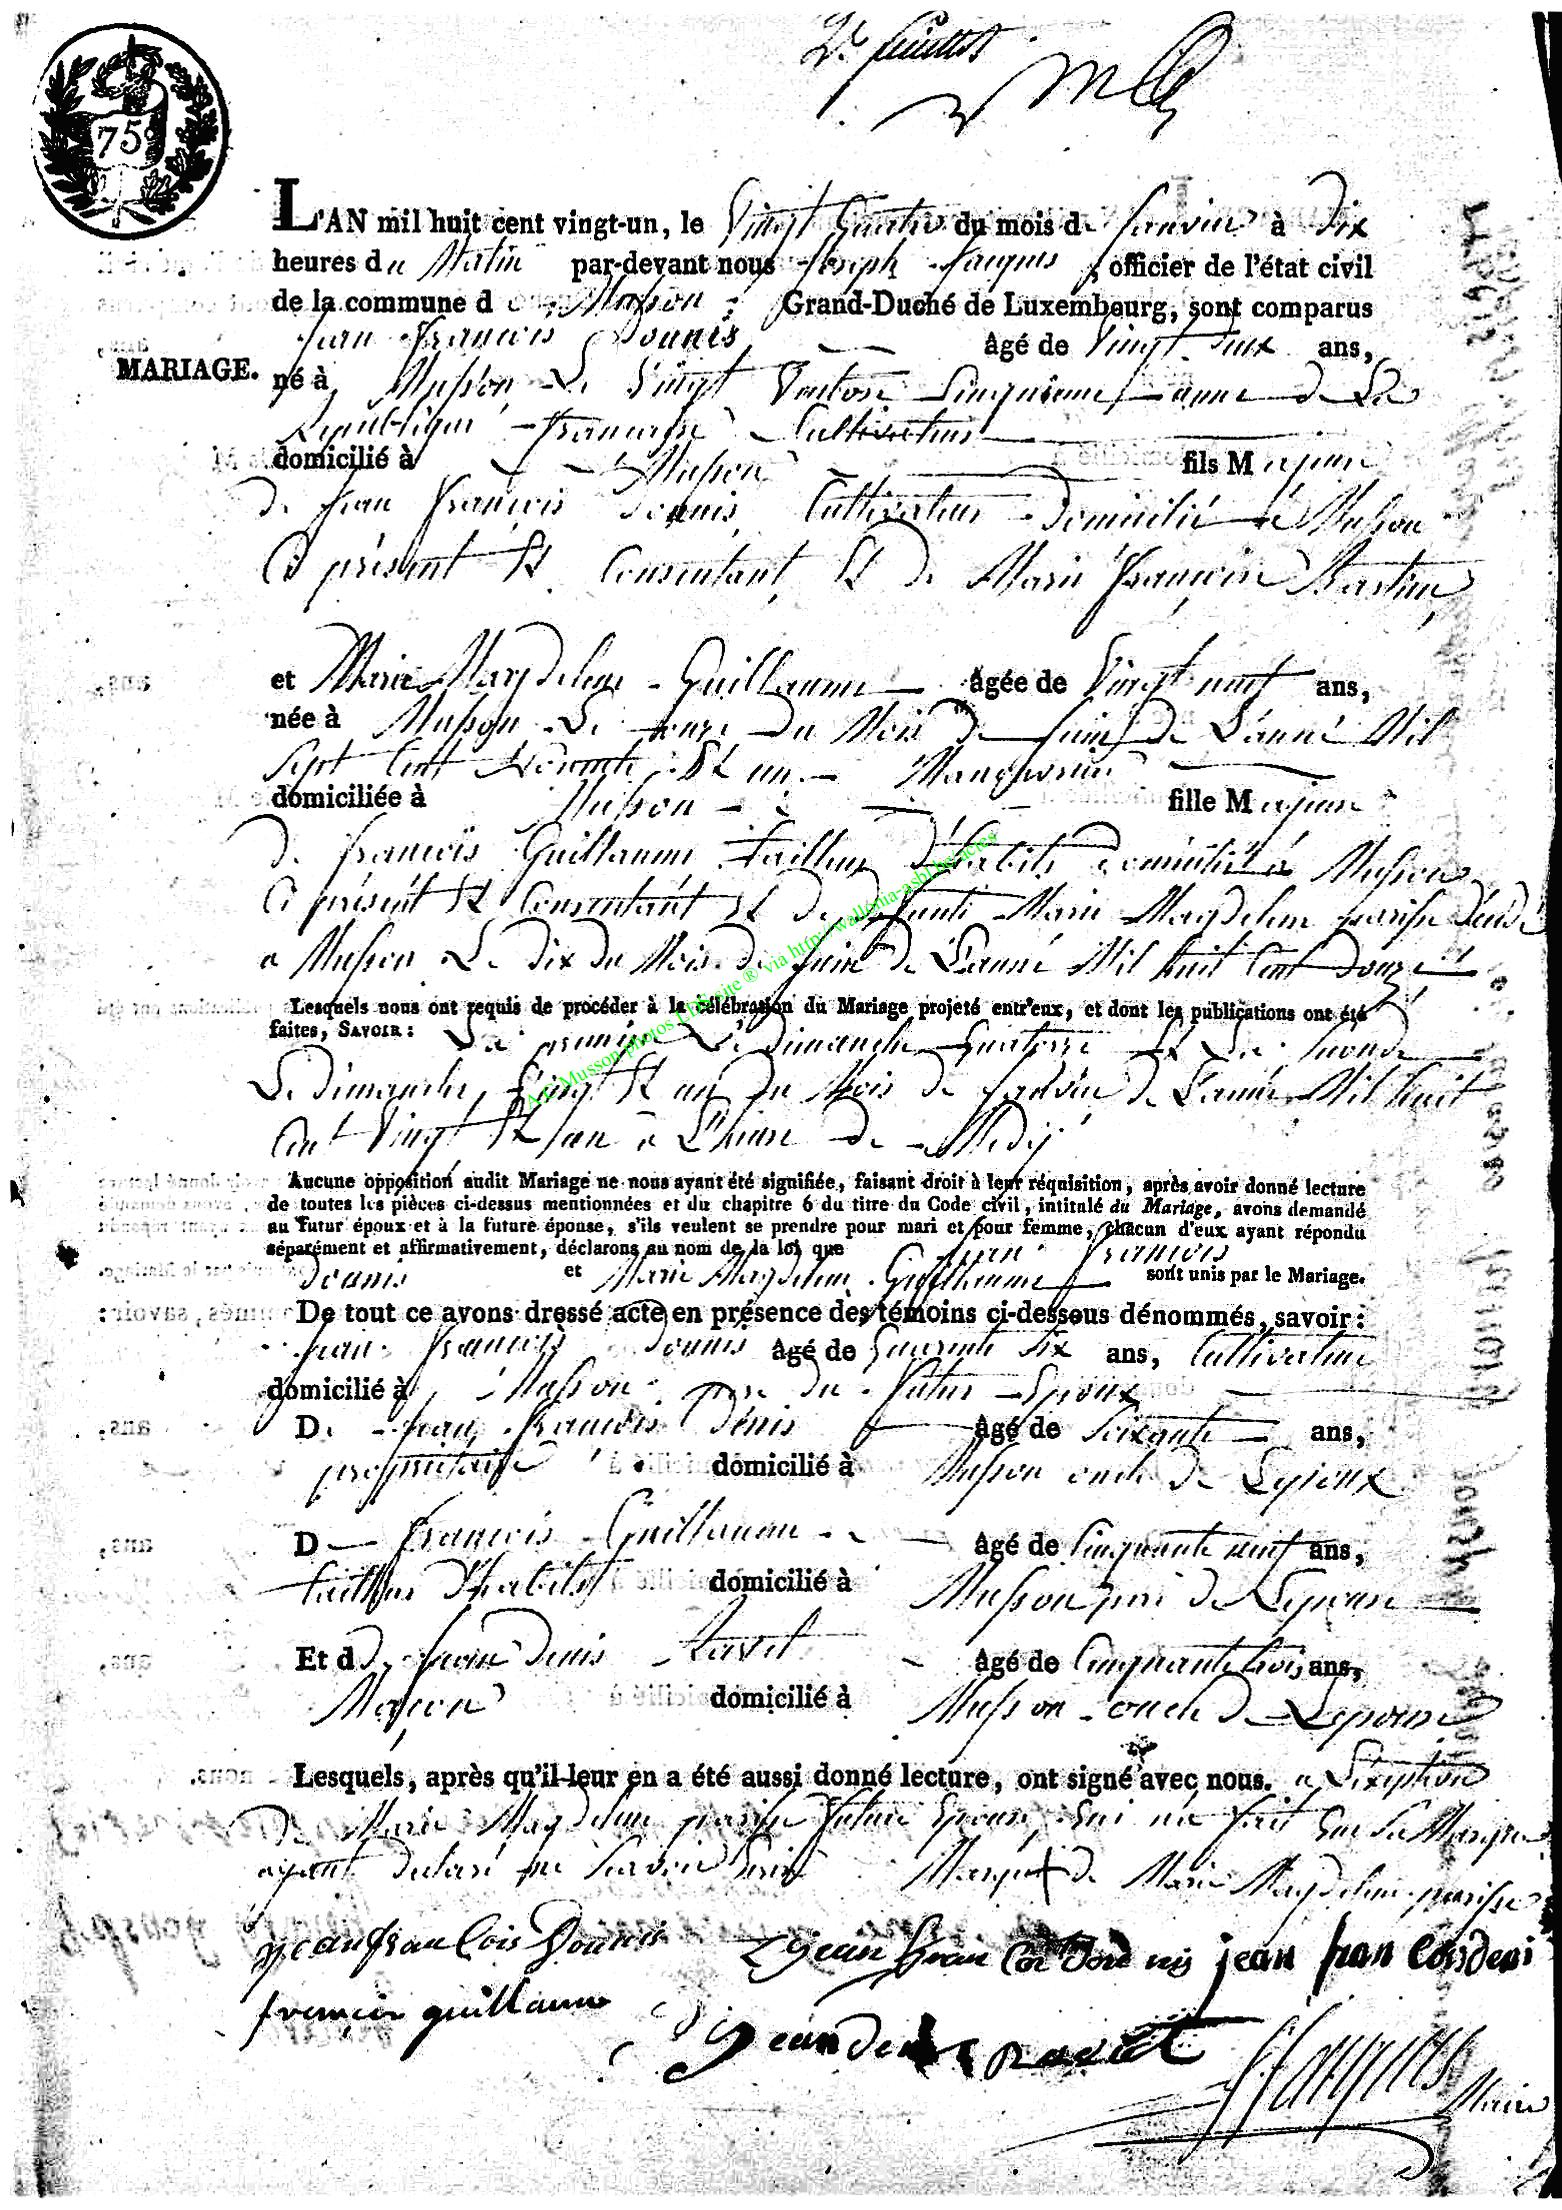 2e feuillet
75
L'AN mil huit cent vingt-un, le Vingt Quatre du mois de Janvier à Dix
heures du Matin par-devant nous Joseph Jacques, officier de l'état civil
de la commune d Musson Grand-Duché de Luxembourg, sont comparus
Jean François Dounis âgé de Vingt deux ans,
MARIAGE.
né à Musson Le Vingt Ventose Cinquieme anné de La
Republique française Cultivateur
domicilié à Musson fils Majeur
de Jean François Dounis Cultivateur Domicilié à Musson
Ci présent Et Consentant, Et de Marie Françoise
et Marie Magdeleine Guillaume âgée de Vingt neuf ans,
née à Musson Le du Mois de Juin de L'année Mil
Sept Cent Nonante Et un
domiciliée à Musson fille Majeure
de François Guillaume Tailleur d'habits domicilié à Musson
Ci présent Et Consentant Et de defunte Marie Magdeleine parisse
a Musson Le dix du Mois de Juin de L'année Mil huit Cent Douze
Lesquels nous ont requis de procéder à la célébration du Mariage projeté entr'eux, et dont les publications ont été
faites, SAVOIR : La premiere Le dimanche Quatorze Et La Seconde
Le dimanche Vingt Et un du Mois de Janvier de L'année Mil huit
Cent Vingt Et un à L'heure de Midy
Aucune opposition audit Mariage ne nous ayant été signifiée, faisant droit à leur réquisition, après avoir donné lecture
de toutes les pièces ci-dessus mentionnées et du chapitre 6 du titre du Code civil, intitulé du Mariage, avons demandé
au futur époux et à la future épouse, s'ils veulent se prendre pour mari et pour femme, chacun d'eux ayant répondu
séparément et affirmativement, déclarons au nom de la loi que Jean François
Dounis et Marie Magdeleine Guillaume sont unis par le Mariage.
De tout ce avons dressé acte en présence des témoins ci-dessous dénommés, savoir :
Jean François Dounis âgé de Quarante Six ans, Cultivateur
domicilié à Musson pere du Futur Epoux
De Jean François Dénis âgé de Soixante ans,
proprietaire domicilié à Musson oncle de Lepoux
D François Guillaume âgé de Cinquante neuf ans,
tailleur D'habits domicilié à Musson pere de Lepouse
Et de Jean Denis Ravet âgé de Cinquante trois ans,
Maçon domicilié à Musson oncle de Lepouse
Lesquels, après qu'il leur en a été aussi donné lecture, ont signé avec nous. a Lexeption
De Marie Magdeleine parisse future Epouse, qui n'a fait que Sa Marque
ayant declaré ne Savoir Ecrire Marque + de Marie Magdeleine parisse
jean fran Cois Dounis jean fran Cois jean fran Cois deni
françoi guillaume
jean denis ravet
J Jacques Maire
A.C Musson photos via http://wallonia-asbl.be/actes